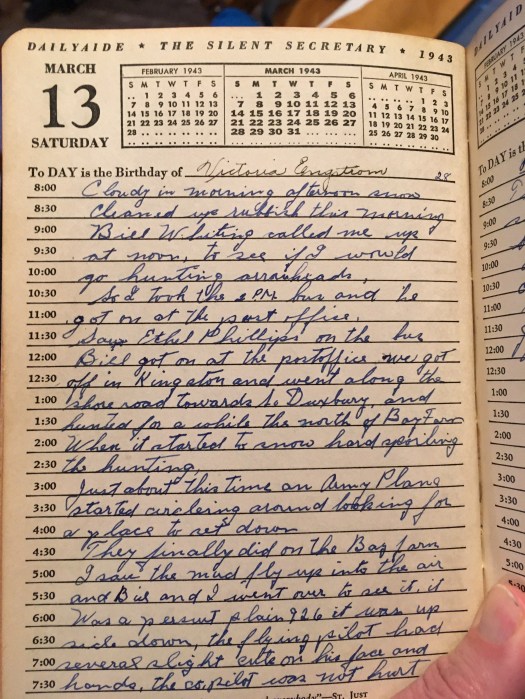 DAILYAIDE ★ THE SILENT SECRETARY ★ 1943
MARCH
13
SATURDAY
FEBRUARY 1943
S M T W T F S
.. 1 2 3 4 5 6
7 8 9 10 11 12 13
14 15 16 17 18 19 20
21 22 23 24 25 26 27
28 .. .. .. .. .. ..
MARCH 1943
S M T W T F S
.. 1 2 3 4 5 6
7 8 9 10 11 12 13
14 15 16 17 18 19 20
21 22 23 24 25 26 27
28 29 30 31 .. .. ..
APRIL 1943
S M T W T F S
.. .. .. .. 1 2 3
4 5 6 7 8 9 10
11 12 13 14 15 16 17
18 19 20 21 22 23 24
25 26 27 28 29 30 ..
To DAY is the Birthday of Victoria Engstrom 28
8:00 Cloudy in morning afternoon snow
8:30 Cleaned up rubbish this morning
9:00 Bill Whiting called me up
9:30 at noon, to see if I would
10:00 go hunting arrowheads.
10:30 So I took the 2 P.M. bus and he
11:00 got on at the post office.
11:30 Saw Ethel Phillips on the bus
12:00 Bill got on at the postoffice we got
12:30 off in Kingston and went along the
1:00 shore road towards Duxbury, and
1:30 hunted for a while the north of Bay Farm
2:00 When it started to snow hard spoiling
2:30 the hunting.
3:00 Just about this time an Army Plane
3:30 started circleing around looking for
4:00 a place to set down
4:30 They finally did on the Bay farm
5:00 I saw the mud fly up into the air
5:30 and Bill and I went over to see it, it
6:00 Was a persuit plain 926 it was up
6:30 side down, the flying pilot had
7:00 several slight cuts on his face and
7:30 hands, the co, pilot was not hurt
"—ST. JUST